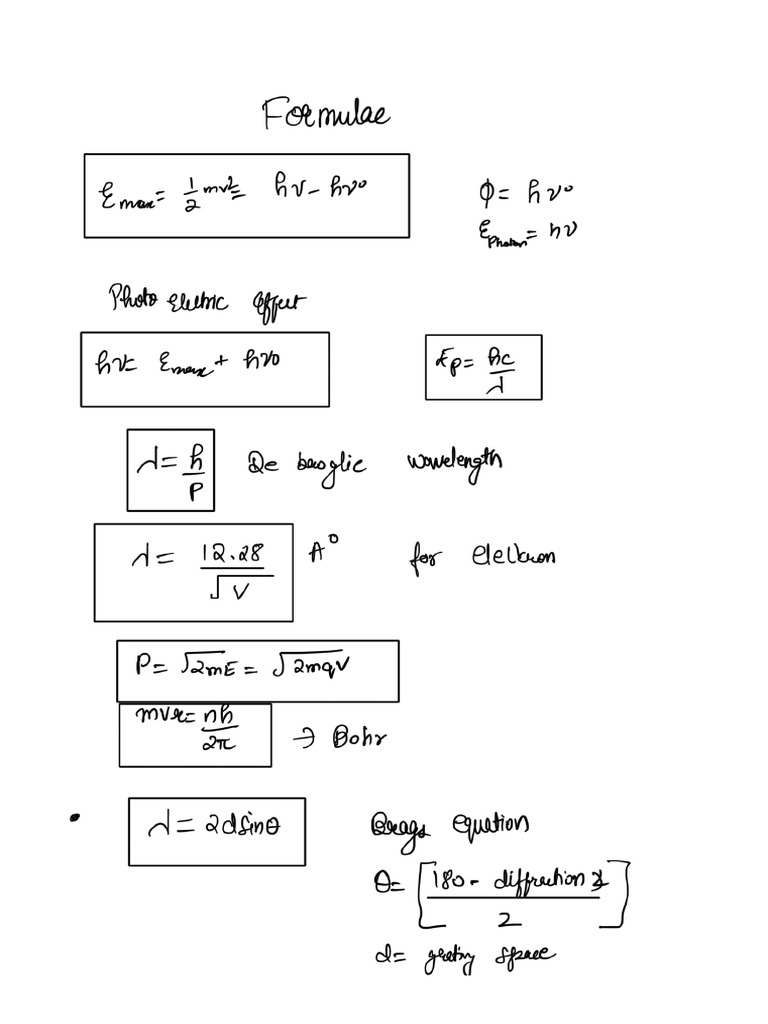 Formulae
Emax = 1/2 mv² = hν - hν₀
φ = hν₀
EPhoton = hν
Photo Eletric Effect
hν = Emax + hν₀
Ep = hc/λ
λ = h/P De broglie wavelength
λ = 12.28/√V A° for electron
P = √2mE = √2mqV
mvr = nh/2π → Bohr
• λ = 2dsinθ Brags equation
θ = [180 - diffraction ∡/2]
d = grating space